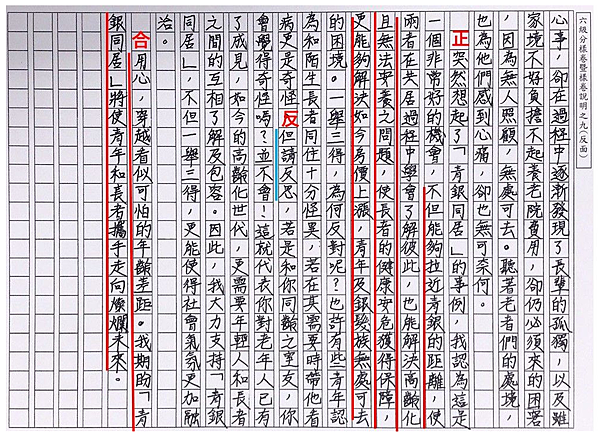 六級分樣卷暨樣卷說明之九(反面)
心事，卻在過程中逐漸發現了長輩的孤獨，以及雖
家境不好負擔不起養老院費用，卻仍必須來的困窘
，因為無人照顧，無處可去。聽著老者們的處境，
也為他們感到心痛，卻也無可奈何。
正突然想起了「青銀同居」的事例，我認為這是
一個非常好的機會，不但能夠拉近青銀的距離，使
兩者在共居過程中學會了解彼此，也能解決高齡化
且無法安養之問題，使長者的健康安危獲得保障，
更能夠解決如今房價上漲，青年及銀髮族無處可去
的困境。一舉三得，為何反對呢？也許有些青年認
為和陌生長者同住十分怪異，若在其需要時帶他看
病更是奇怪反但請反思，若是和你同齡之室友，你
會覺得奇怪嗎？並不會！這就代表你對老年人已有
了成見，如今的高齡化世代，更需要年輕人和長者
之間的互相了解及包容。因此，我大力支持「青銀
同居」，不但一舉三得，更能使得社會氣氛更加融
洽。
合用心，穿越看似可怕的年齡差距。我期盼「青
銀同居」將使青年和長者攜手走向燦爛未來。